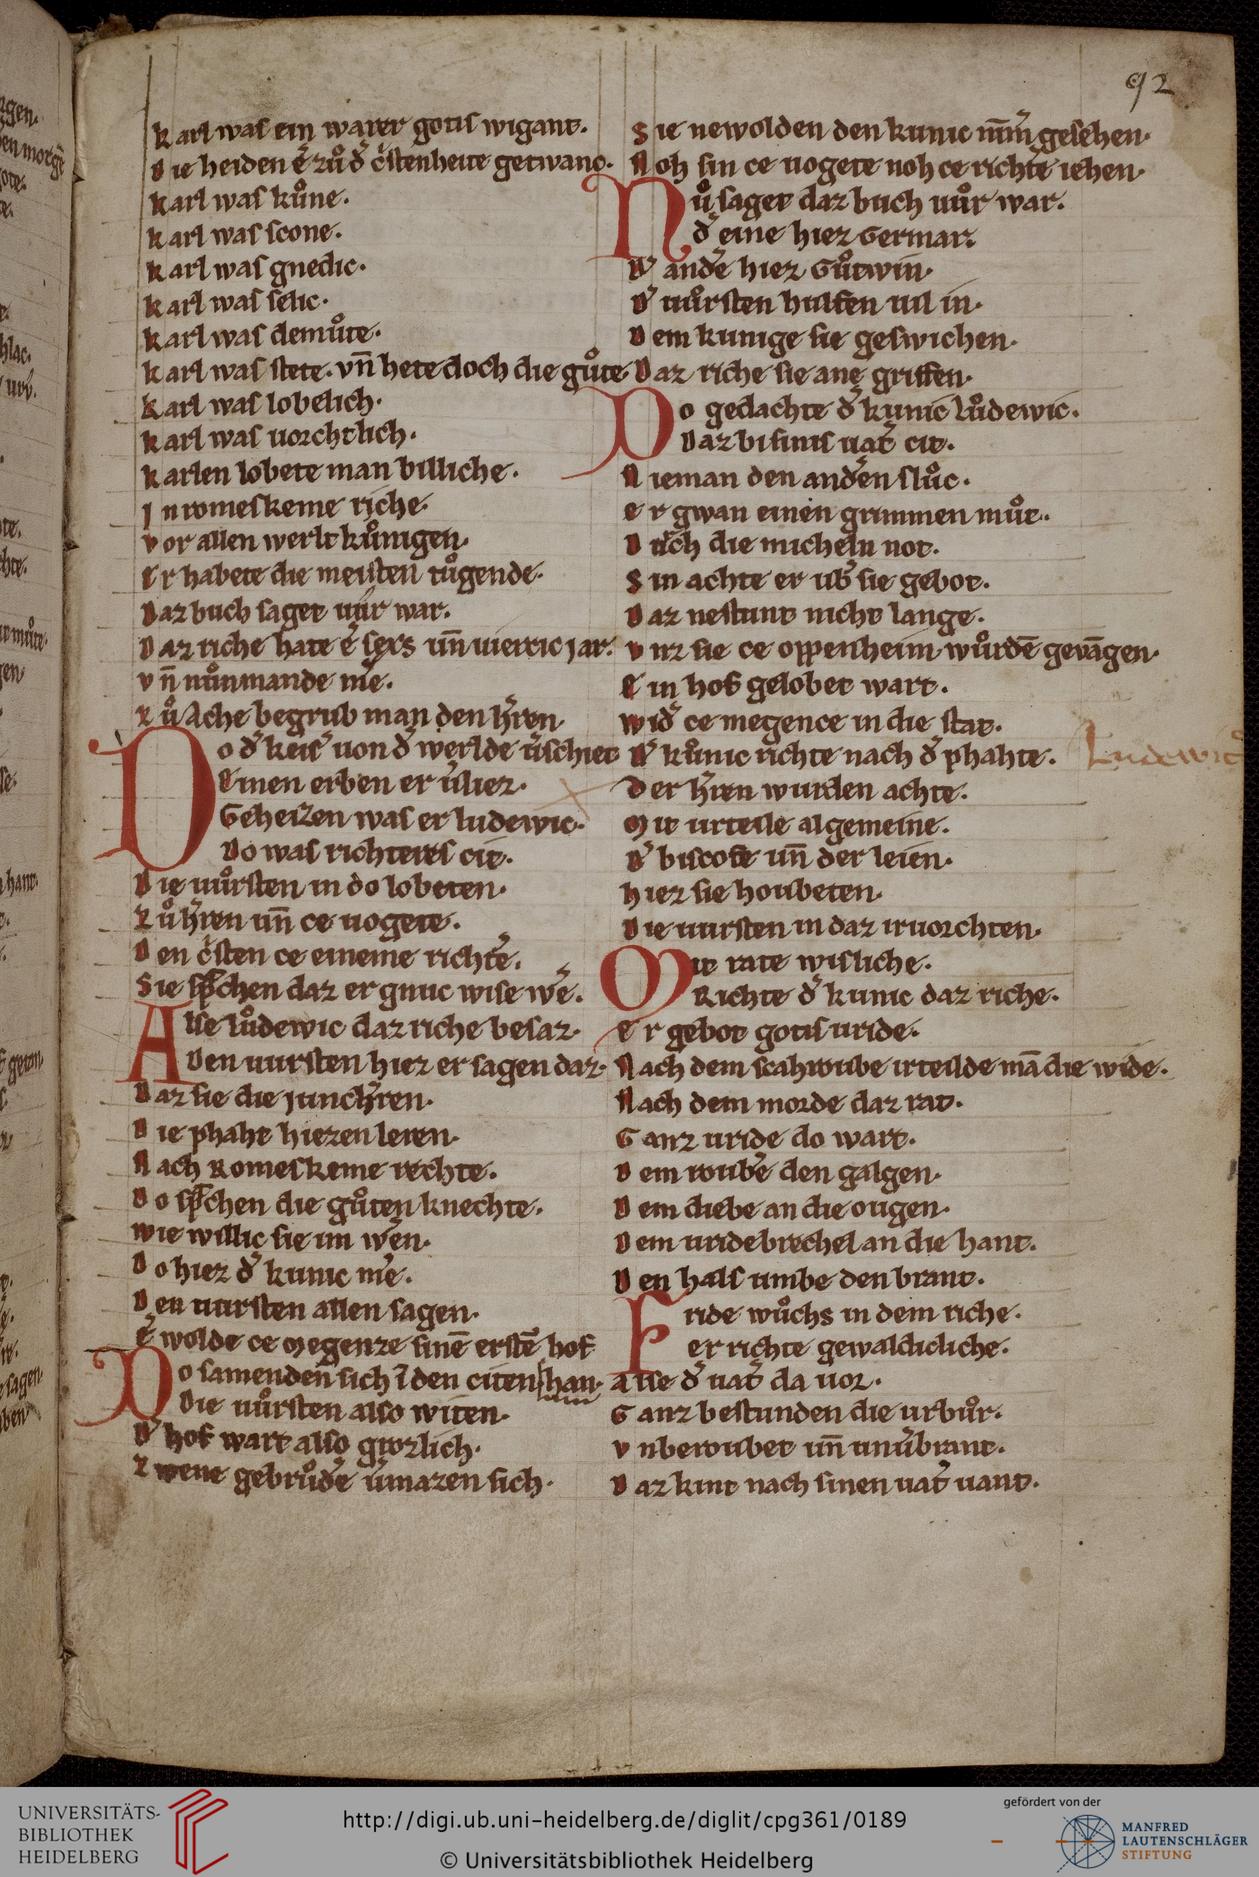 92
karl was ein warer gotis wigant.
Die heiden er̄ zůd̄ c̄stenheite getwanc.
karl was kůne.
karl was scone.
karl was gnedic.
karl was selic.
karl was demůte.
karl was stete. vn̄ hete doch die gůte.
karl was lobelich.
karl was uorchtlich.
karlen lobete man billiche.
In romeskeme riche.
vor allen werlt kůnigen.
Er habete die meisten tůgende.
Daz buch saget uůr war.
Daz riche hate er̄ sexs un̄ uierzic jar.
vn̄ nůnmande me.
zů Ache begrub man den h̄ren.
Do d̄ keis̄ uon d̄ werlde v̄schiet
Einen erben er v̄liez.
Geheizen was er ludewic.
Do was richteres cit.
Die uůrsten in do lobeten.
zů h̄ren un̄ ce uogete.
Den c̄sten ce eineme richt̄e.
Sie sp̄chen daz er gnuc wise we̅.
Alse lůdewic daz riche besaz.
Den uursten hiez er sagen daz.
Daz sie die junch̄ren.
Die phaht hiezen leren.
Nach Romeskeme rechte.
Do sp̄chen die gůten knechte.
wie willic sie im we̅n.
Do hiez d̄ kunic me̅.
Den uursten allen sagen.
er̄ wolde ce Megenze sinē erstē hof
han.
Do samenden sich ī den citen
Die uůrsten also witen.
D̄ hof wart also grozlich.
zwene gebrůd̄e v̄mazen sich.
Sie newolden den kunic nīm̄ gesehen.
Noh sin ce uogete noh ce richt̄e iehen.
Nů saget daz buch uůr war.
d̄ eine hiez Germar.
D̄ and̄e hiez Gůtwin.
D̄ uůrsten hulfen uil in.
Dem kunige sie geswichen.
Daz riche sie ane griffen.
Do gedachte d̄ kunic lůdewic.
Daz bi sinis uat̄ cit.
Nieman den and̄en slůc.
er gwan einen grimmen můt.
Durch die micheln not.
Sin achte er ub̄ sie gebot.
Daz nestunt nicht lange.
vnz sie ce oppenheim wůrdē gevāgen.
Ein hof gelobet wart.
wid̄ ce megence in die stat.
D̄ kůnic richte nach d̄ phahte.
Ludewic᷒
der h̄ren wurden achte.
Mit urteile algemeine.
D̄ biscofe un̄ der leien.
hiez sie houbeten.
Die uursten in daz iruorchten.
Mit rate wisliche.
Richte d̄ kunic daz riche.
er gebot gotis uride.
Nach dem scahroube irteilde mā die wide.
Nach dem morde daz rat.
Ganz uride do wart.
Dem roub̄e den galgen.
Dem diebe an die ougen.
Dem uridebrechel an die hant.
Den hals umbe den brant.
Fride wůchs in dem riche.
er richte gewaldicliche.
alse d̄ uat̄ da uor.
Ganz bestunden die urbůr.
vnberoubet un̄ unu̅brant.
Daz kint nach sinen uat̄ uant.
UNIVERSITÄTS-
BIBLIOTHEK
HEIDELBERG
http://digi.ub.uni-heidelberg.de/diglit/cpg361/0189
© Universitätsbibliothek Heidelberg
gefördert von der
MANFRED
LAUTENSCHLÄGER
STIFTUNG